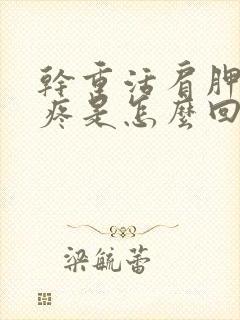 幹重活肩胛
疼是怎麼回
梁毓蕾